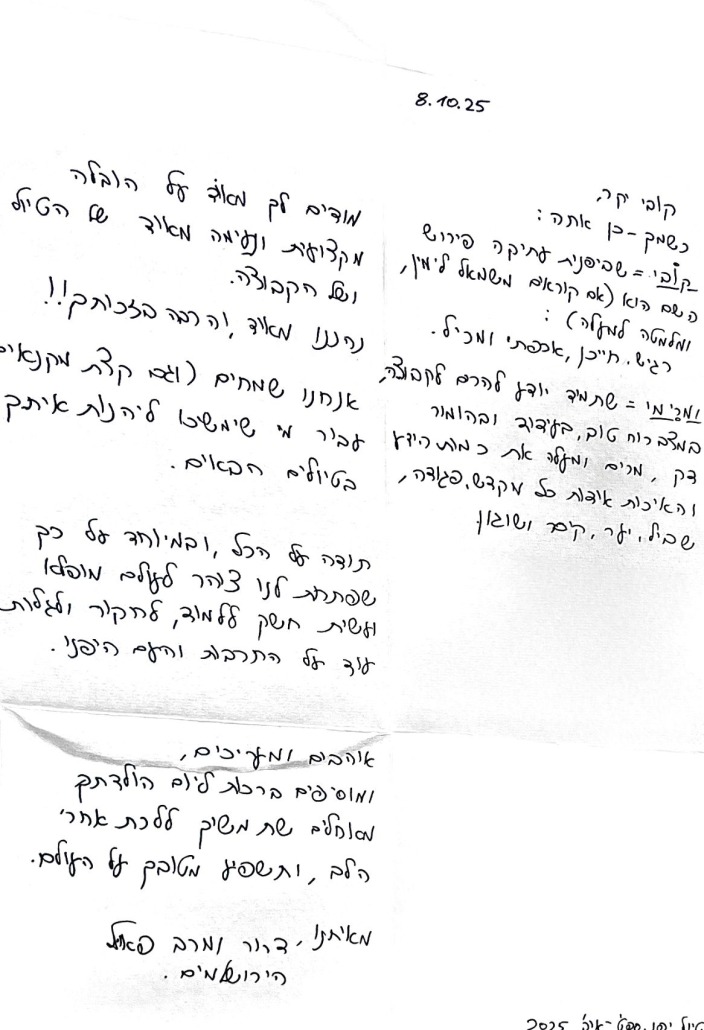 8.10.25
קובי יקר,
כשמך - כן אתה:
קובי = שביפנית עתיקה פירוש
השם הוא (אם קוראים משמאל לימין,
ומלמטה למעלה):
רגיש, חייכן, אכפתי ומכיל.
ומגימי = שתמיד יודע להרם לקבוצה,
במצב רוח טוב, בעידוד ובהומור
דק, מרים ומעלה את כמות הידע
והאיכות אודות כל מקדש, פגודה,
שביל, יער, קיסר ושוגון
מודים לך מאוד על הובלה
מקצועית ונעימה מאוד של הטיול
ושל הקבוצה.
נהננו מאוד, והרבה בזכותך!!
אנחנו שמחים (וגם קצת מקנאים
עבור מי שימשיכו ליהנות איתך
בטיולים הבאים.
תודה על הכל, ובמיוחד על כך
שפתחת לנו צוהר לעולם מופלא
ועשית חשק ללמוד, לחקור ולגלות
עוד על התרבות והעם היפני.
אוהבים ומעריכים,
ומוסיפים ברכות ליום הולדתך
מאוחלים שת משיך ללכת אחרי
הלב, ותשפיע מטובך על העולם.
מאיתנו, דרור ומרב
הירושלמים.
טיול יפן, 2025